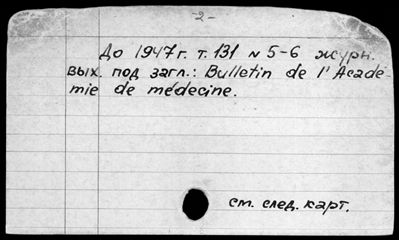 -2-
До 1947 г. т. 131 № 5-6 журн.
вых. под загл.: Bulletin de l'Acadé-
mie de médecine.
см. след. карт.